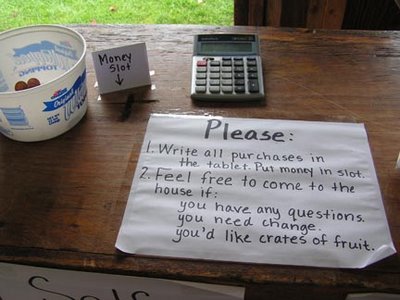 Money
Slot
Please:
1. Write all purchases in
the tablet. Put money in slot.
2. Feel free to come to the
house if:
you have any questions.
you need change.
you'd like crates of fruit.
TOPPING
Original
Self